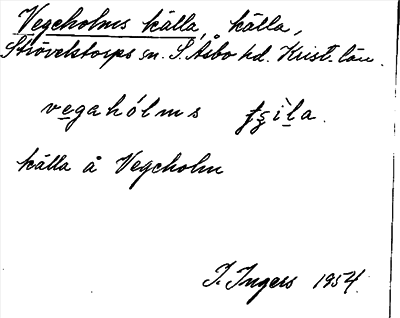 Vegeholms källa, källa,
Strövelstorps sn. S. Åsbo hd. Krist. län.
vegahólms tʂìla.
källa å Vegeholm
I. Ingers 1954.